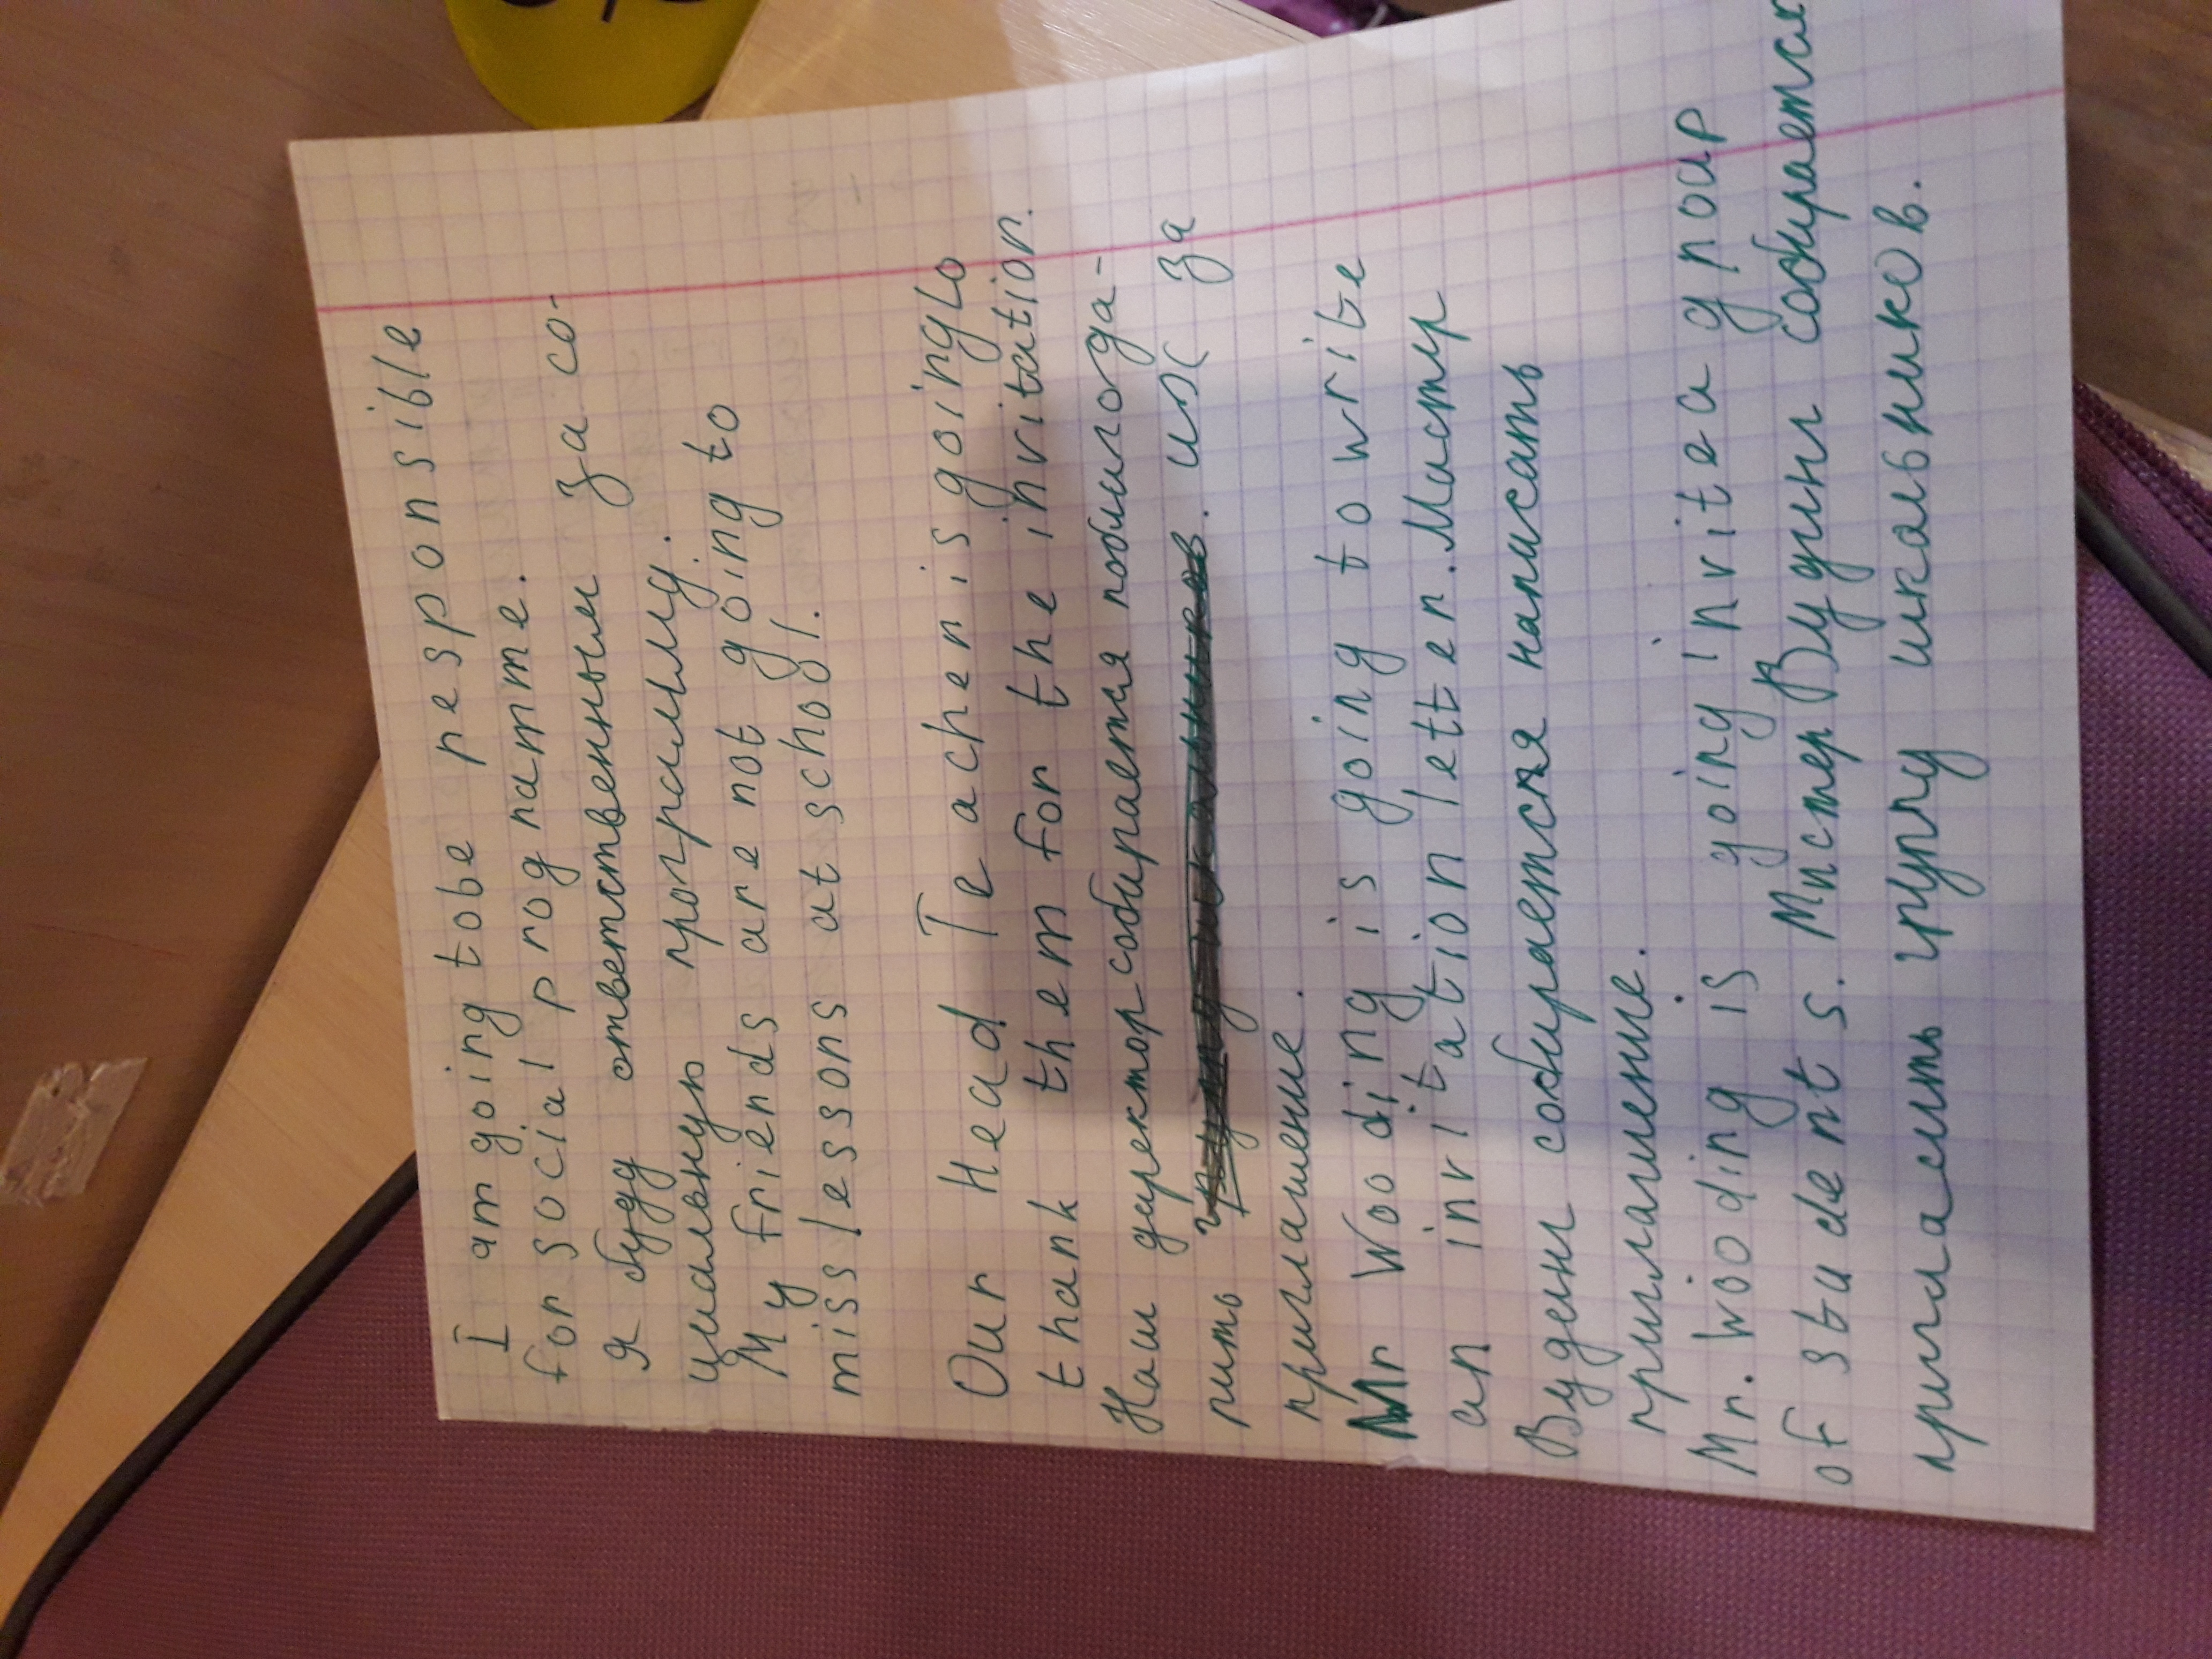 I am going tobe responsible
for social programme.
Я буду ответственным за со-
циальную программу.
My friends are not going to
miss lessons at school.
Our Head Teacher is going to
thank them for the invitation.
Наш директор собирается поблагода-
рить их за
приглашение.
Mr Wooding is going to write
an invitation letter. Мистр
Вуденг собирается написать
приглашение.
Mr. Wooding is going invite a groap
of students. Мистер Вудинг собирается
пригласить групу школьников.